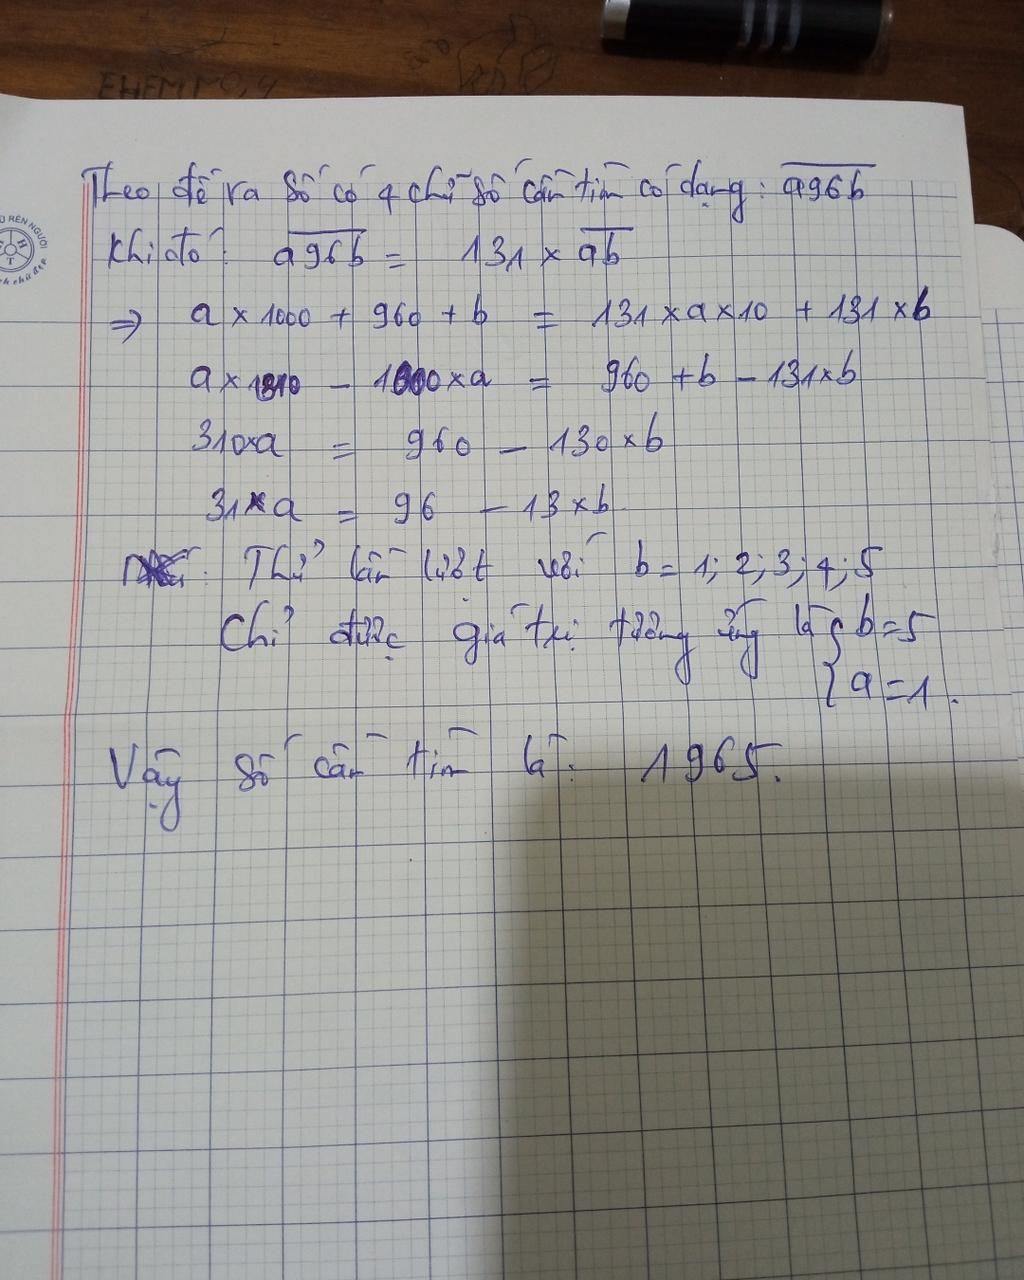 EHEM
Theo đề ra số có 4 chữ số cần tìm có dạng: a96b
RÈN NGƯỜI
Khi đó: a96b = 131 × ab
⇒ a × 1000 + 960 + b = 131 × a × 10 + 131 × b
a × 1310 - 1000 × a = 960 + b - 131 × b
310 × a = 960 - 130 × b
31 × a = 96 - 13 × b
Thử lần lượt với b = 1; 2; 3; 4; 5
Chỉ được giá trị tương ứng là { b = 5
a = 1.
Vậy số cần tìm là: 1965.